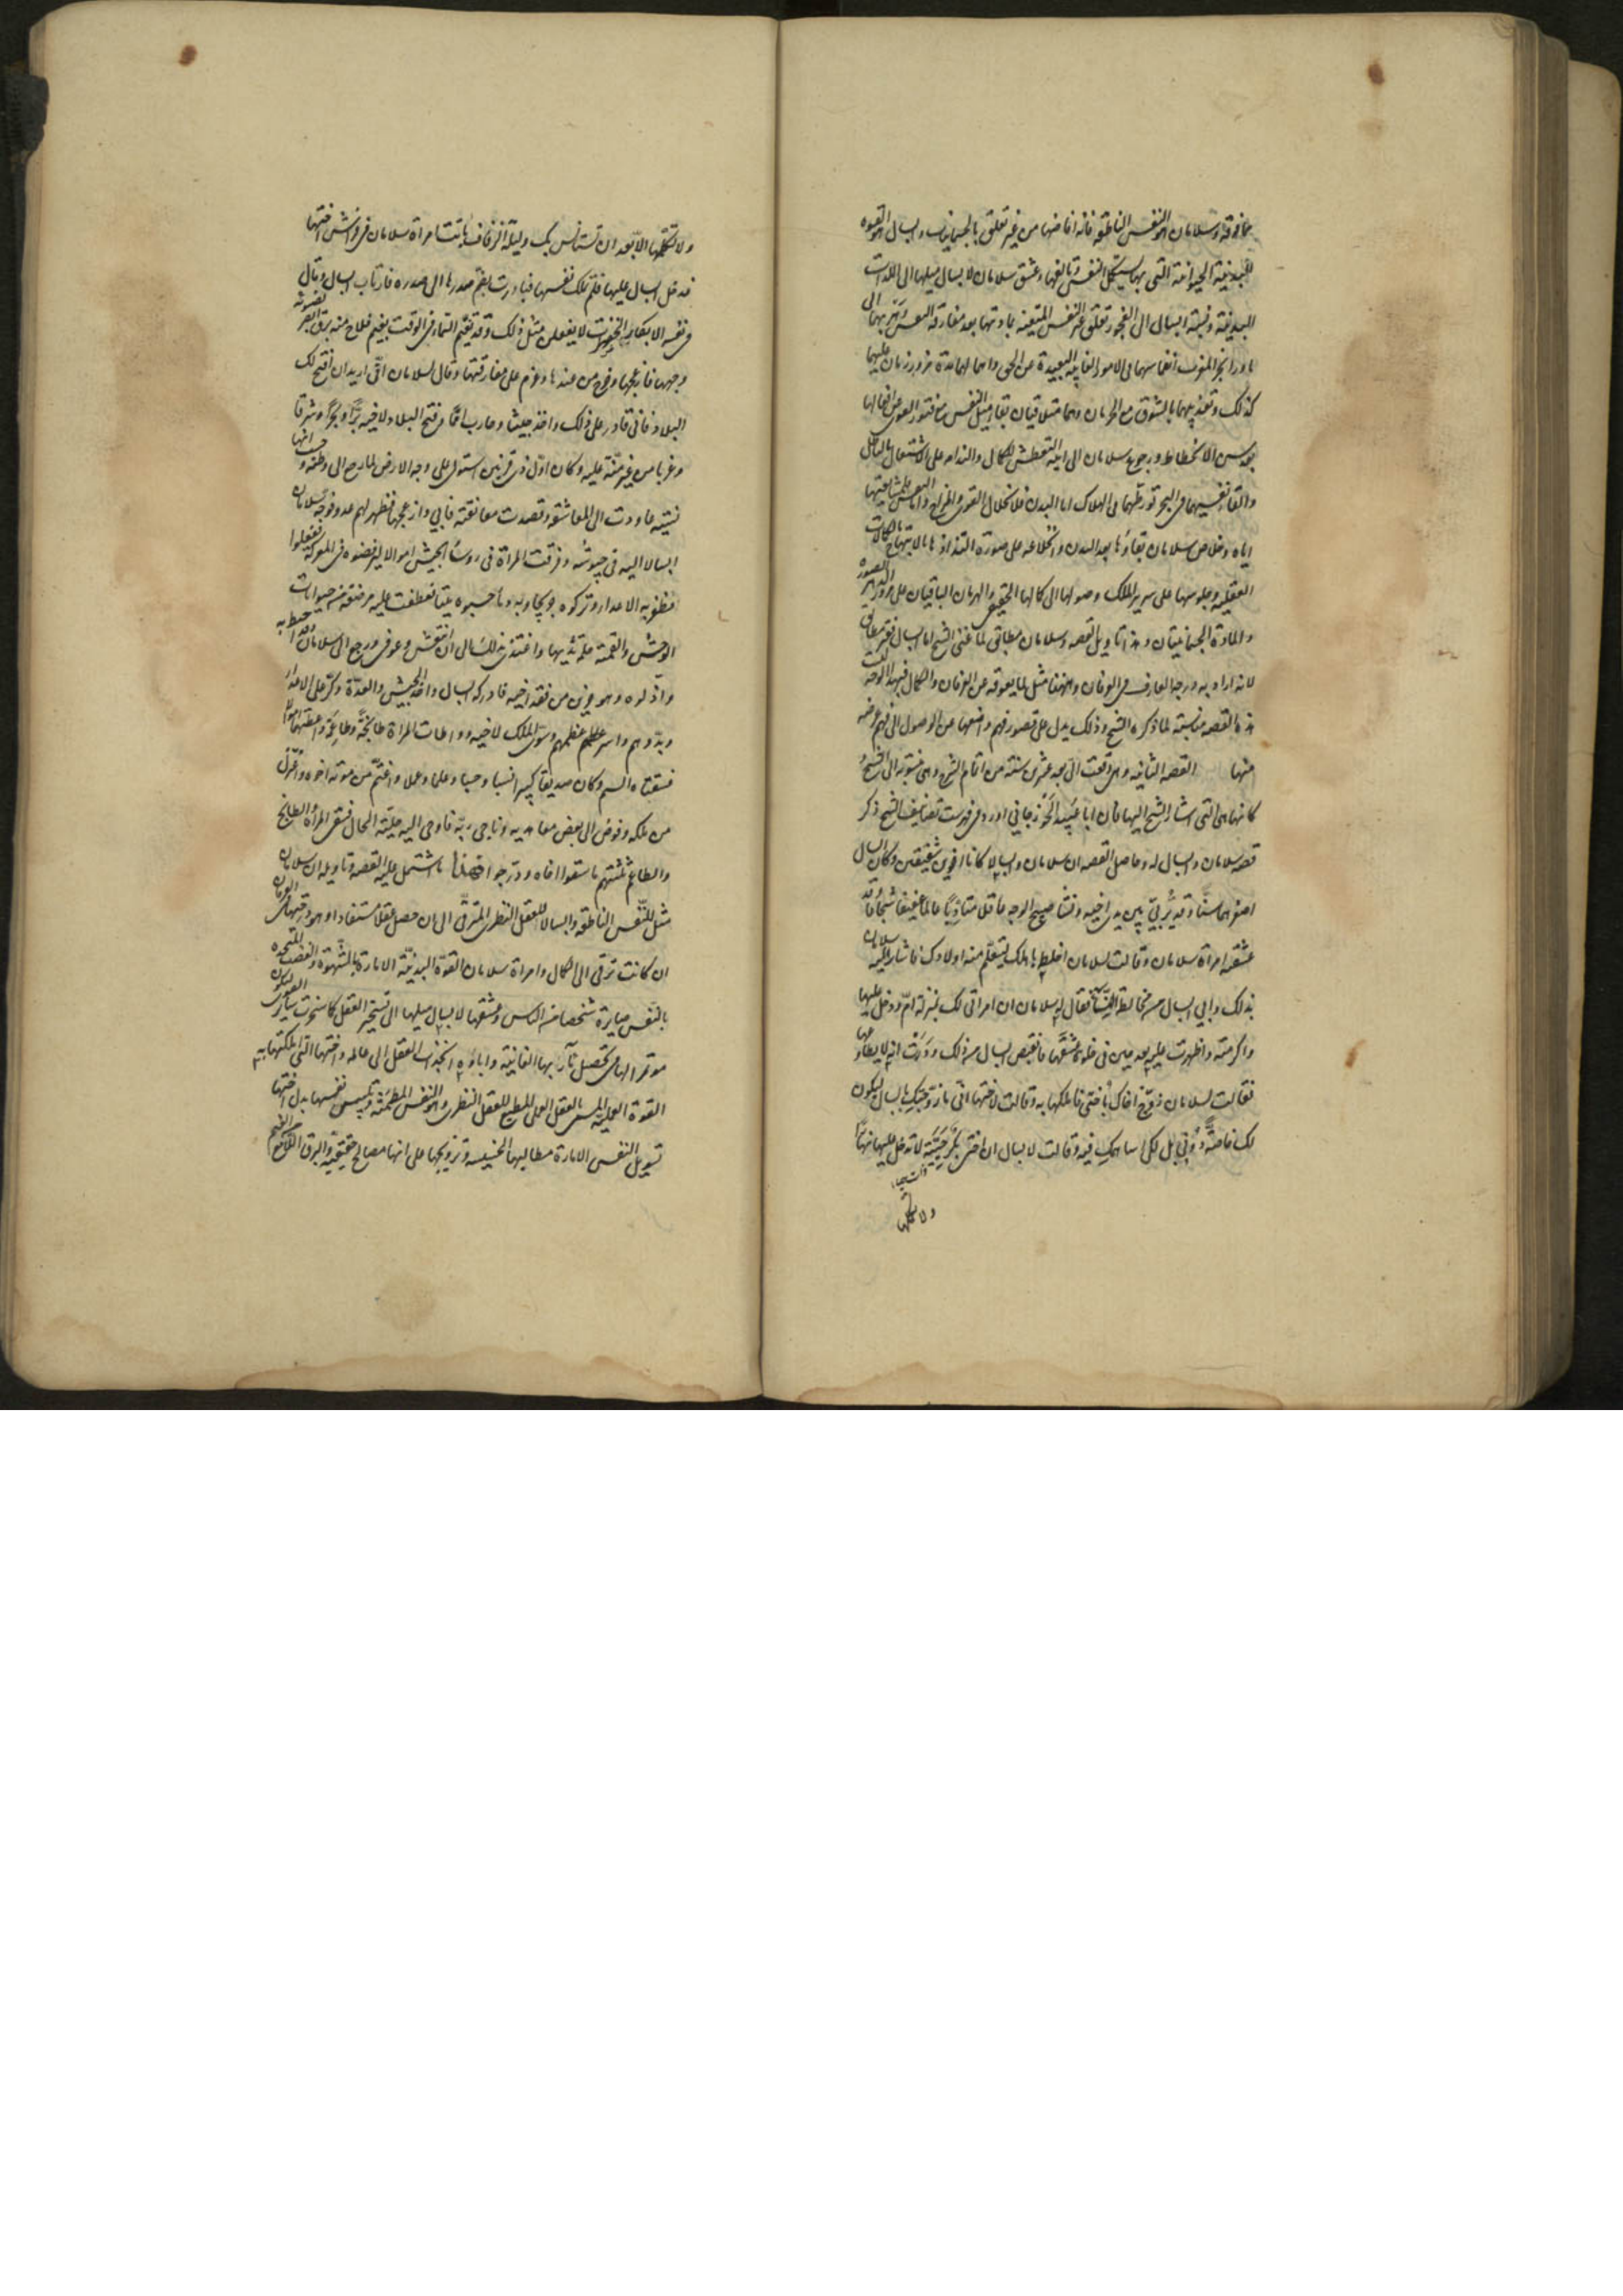 مما فوقه وسلامان هو النفس الناطقه فانه افاضها من غير تعلق بالجسمانيات وابسال هو القوه
البدنية الحيوانية التى بها يستكمل النفس وتألفها وعشق سلامان لابسال ميلها الى اللذات
البدنية ونسبة ابسال الى الفجور تعلق غير النفس المتعينه بمادتها بعد مفارقة النفس وهربهما الى
ما وراء بحر المغرب انغماسهما فى الامور الفانيه البعيدة عن الحق واهمالهما مدة مرور زمان عليهما
كذلك وتعذيبهما بالشوق مع الحرمان وهما متلاقيان بقاء ميل النفس مع فتور القوى عن افعالها
بعد سن الانحطاط ورجوع سلامان الى ابيه التعطش للكمال والندامه على الاشتغال بالباطل
والقاء نفسيهما فى البحر تورطهما فى الهلاك اما البدن فلانحلال القوى والمزاج واما النفس فلمشايعتها
اياه وخلاص سلامان بقاؤها بعد البدن واطلاعه على صورة التذاذها بالابتهاج بالكمالات
العقلية وجلوسها على سرير الملك وصولها الى كمالها الحقيقى والهرمان الباقيان على مرور الدهر الصوره
والمادة الجسمانيتان وهذا تاويل القصه وسلامان مطابق لما عنى الشيخ اما ابسال فغير مطابق
لانه اراد به درجه العارف فى العرفان وههنا مثل لما يعوقه عن العرفان والكمال فبهذا الوجه ليست
هذه القصه مناسبة لما ذكره الشيخ وذلك يدل على قصور فهم واضعها عن الوصول الى فهم غرضه
منها القصه الثانيه وهى وقعت الى بعد عشرين سنة من اتمام الشرح وهى منسوبه الى الشيخ
كانها هى التى اشار الشيخ اليها فان ابا عبيد الجوزجانى اورد فى فهرست تصانيف الشيخ ذكر
قصه سلامان وابسال له وحاصل القصه ان سلامان وابسالا كانا اخوين شقيقين وكان ابسال
اصغرهما سنا وقد تربى بين يدى اخيه ونشأ صبيح الوجه عاقلا متادبا عالما عفيفا شجاعا وقد
عشقته امراة سلامان وقالت لسلامان اخلطه باهلك ليتعلم منه اولادك فاشار اليه سلامان
بذلك وابى ابسال من مخالطة النساء فقال له سلامان ان امراتى لك بمنزلة ام ودخل عليها
واكرمته واظهرت عليه بعد حين فى خلوة عشقها فانقبض ابسال من ذلك ودرت انه لا يطاوعها
فقالت لسلامان زوج اخاك باختى فاملكها به وقالت لاختها انى ما زوجتك بابسال ليكون
لك خاصة دونى بل لكى اساهمك فيه وقالت لابسال ان اختى بكر حيية لا تدخل عليها نهارا
ولا تكلمها
ولا تكلمها الا بعد ان تستانس بك وليلة الزفاف باتت امراة سلامان فى فراش اختها
فدخل ابسال عليها فلم تملك نفسها فبادرت بضم صدرها الى صدره فارتاب ابسال وقال
فى نفسه الابكار الخفرات لا يفعلن مثل ذلك وقد تغيم السماء فى الوقت بغيم فلاح منه برق ابصر بضوئه
وجهها فازعجها وخرج من عندها وعزم على مفارقتها وقال لسلامان انى اريد ان افتح لك
البلاد فانى قادر على ذلك واخذ جيشا وحارب امما وفتح البلاد لاخيه برا وبحرا وشرقا
وغربا من غير منة عليه وكان اول ذى قرنين استولى على وجه الارض لما رجع الى وطنه وحسب انها
نسيته عاودت الى المعاشقه وقصدت معانقته فابى وازعجها فظهر لهم عدو فوجه سلامان
ابسالا اليه فى جيوشه وفرقت المراة فى روساء الجيش اموالا ليرفضوه فى المعركة ففعلوا
وظفر به الاعداء وتركوه جريحا وبه دماء حسبوه ميتا فعطفت عليه مرضعة من حيوانات
الوحش والقمته حلمة ثديها واغتذى بذلك الى ان انتعش وعوفى ورجع الى سلامان وقد احيط به
واذلوه وهو حزين من فقد اخيه فادركه ابسال واخذ الجيش والعدة وكر على الاعداء
وبددهم واسر عظيمهم وسوى الملك لاخيه وواطأت المراة طابخة وطاعمة واعطتهما اموالا
فسقتاه السم وكان صديقا كبيرا نسبا وحسبا وعلما وعملا واغتم من موته اخوه واعتزل
من ملكه وفوض الى بعض معاهديه وناجى ربه فاوحى اليه جلية الحال فسقى المراة والطابخ
والطاعم ثلثتهم ما سقوا اخاه ودرجوا فهذا ما اشتمل عليه القصه وتاويله ان سلامان
مثل للنفس الناطقه وابسالا للعقل النظرى المترقى الى ان حصل عقلا مستفادا وهو درجتها فى العرفان
ان كانت ترقى الى الكمال وامراة سلامان القوة البدنية الامارة بالشهوة والغضب المتحده
بالنفس صايرة شخصا من الناس وعشقها لابسال ميلها الى تسخير العقل كما سخرت ساير القوى ليكون
موتمرا لها فى تحصيل مآربها الفانية واباؤه انجذاب العقل الى عالمه واختها التى املكتها به
القوة العملية المسمى بالعقل العملى المطيع للعقل النظرى وهو النفس المطمئنه وتلبيس نفسها بدل اختها
تسويل النفس الامارة مطالبها الخسيسه وترويجها على انها مصالح حقيقيه والبرق اللامع من الغيم